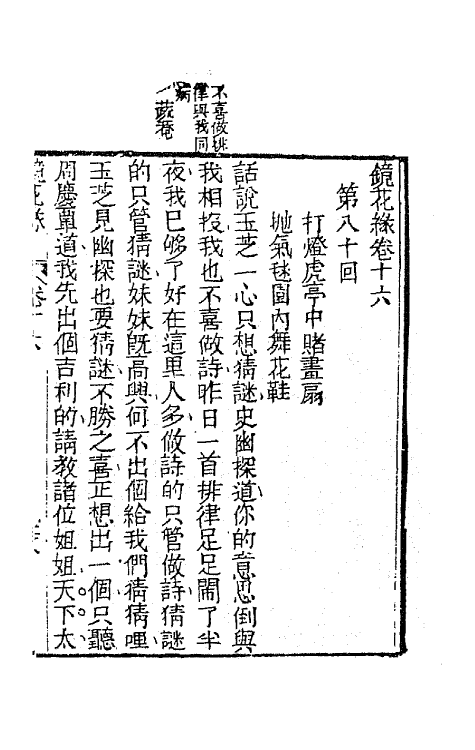 不喜做排
律與我同
病
蔬菴
鏡花緣卷十六
第八十回
打燈虎亭中賭畫扇
拋氣毬園內舞花鞋
話說玉芝一心只想猜謎史幽探道你的意思倒與
我相投我也不喜做詩昨日一首排律足足鬧了半
夜我已够了好在這里人多做詩的只管做詩猜謎
的只管猜謎妹妹旣高興何不出個給我們猜猜哩
玉芝見幽探也要猜謎不勝之喜正想出一個只聽
周慶覃道我先出個吉利的請教諸位姐姐天下太
鏡花緣
卷十六